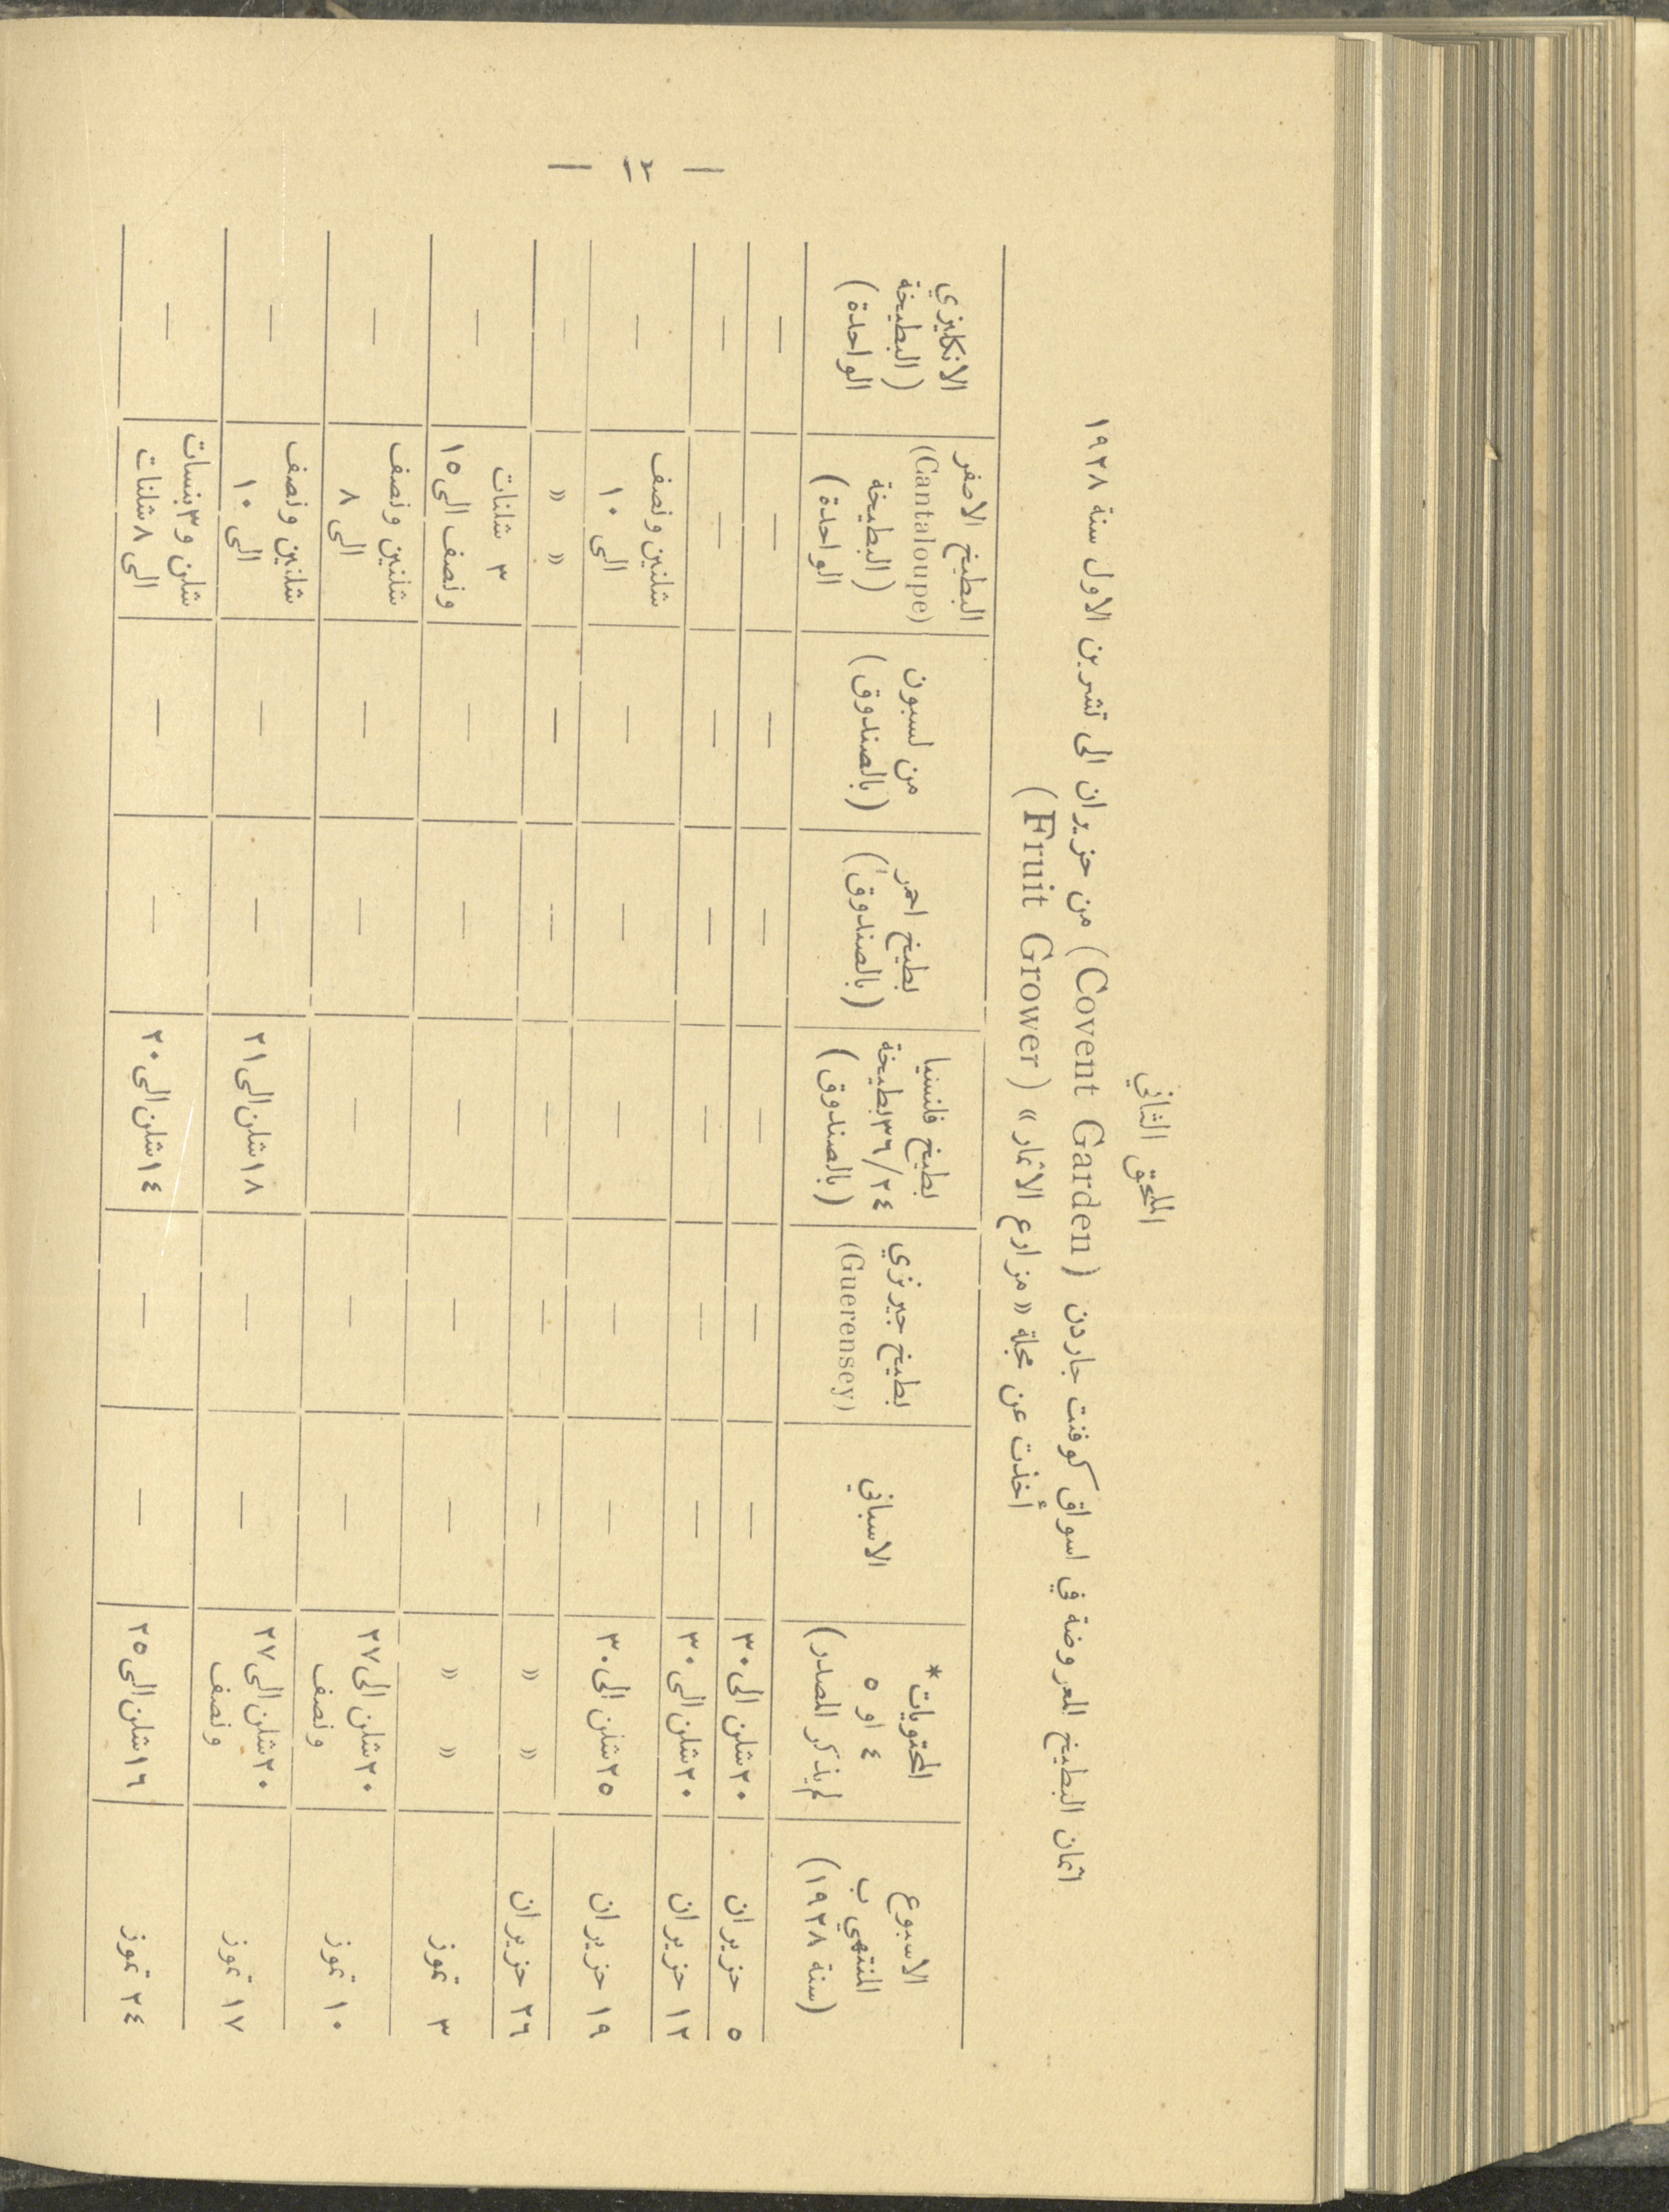 الملحق الثاني
اثمان البطيخ المعروضة في اسواق كوفنت جاردن (Covent Garden) من حزيران الى تشرين الاول سنة ١٩٣٨
أخذت عن مجلة «مزارع الاثمار» (Fruit Grower)
الاسبوع
المنتهي ب
(سنة ١٩٣٨)
المحتويات*
٤ او ٥
لم يذكر المصدر)
الاسباني
بطيخ جيرنزي
(Guerensey)
بطيخ فلنسيا
٣٦/٢٤بطيخة
(بالصندوق)
بطيخ احمر
(بالصندوق)
من لسبون
(بالصندوق)
البطيخ الاصفر
(Cantaloupe)
(البطيخة
الواحدة)
الانكليزي
(البطيخة
الواحدة)
٥ حزيران ٢٠شلن الى ٣٠ — — — — — — —
١٢ حزيران ٢٠شلن الى ٣٠ — — — — — — —
١٩ حزيران ٢٥شلن الى ٣٠ — — — — — شلنين ونصف —
الى ١٠
٢٦ حزيران » » — — — — — » » —
٣ تموز » » — — — — — ٣ شلنات —
ونصف الى ١٥
١٠ تموز ٢٠شلن الى ٢٧ — — — — — شلنين ونصف —
ونصف الى ٨
١٧ تموز ٢٠شلن الى ٢٧ — — ١٨شلن الى ٢١ — — شلنين ونصف —
ونصف الى ١٠
٢٤ تموز ١٦شلن الى ٢٥ — — ١٤شلن الى ٢٠ — — شلن و٣بنسات —
الى ٨ شلنات
— ١٢ —